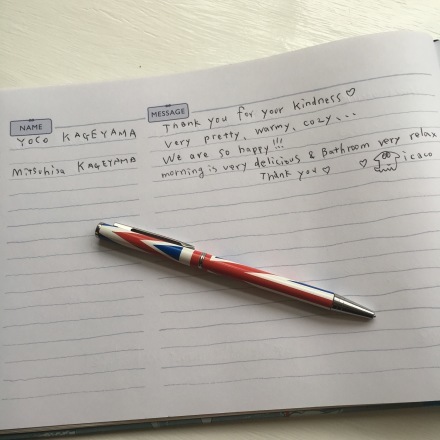 NAME
MESSAGE
YOCO KAGEYAMA
Mitsuhisa KAGEYAMA
Thank you for your kindness ♡
Very pretty, warm, cozy, ...
We are so happy!!!
morning is very delicious & Bathroom very relax
Thank you ♡ ♡ icaco